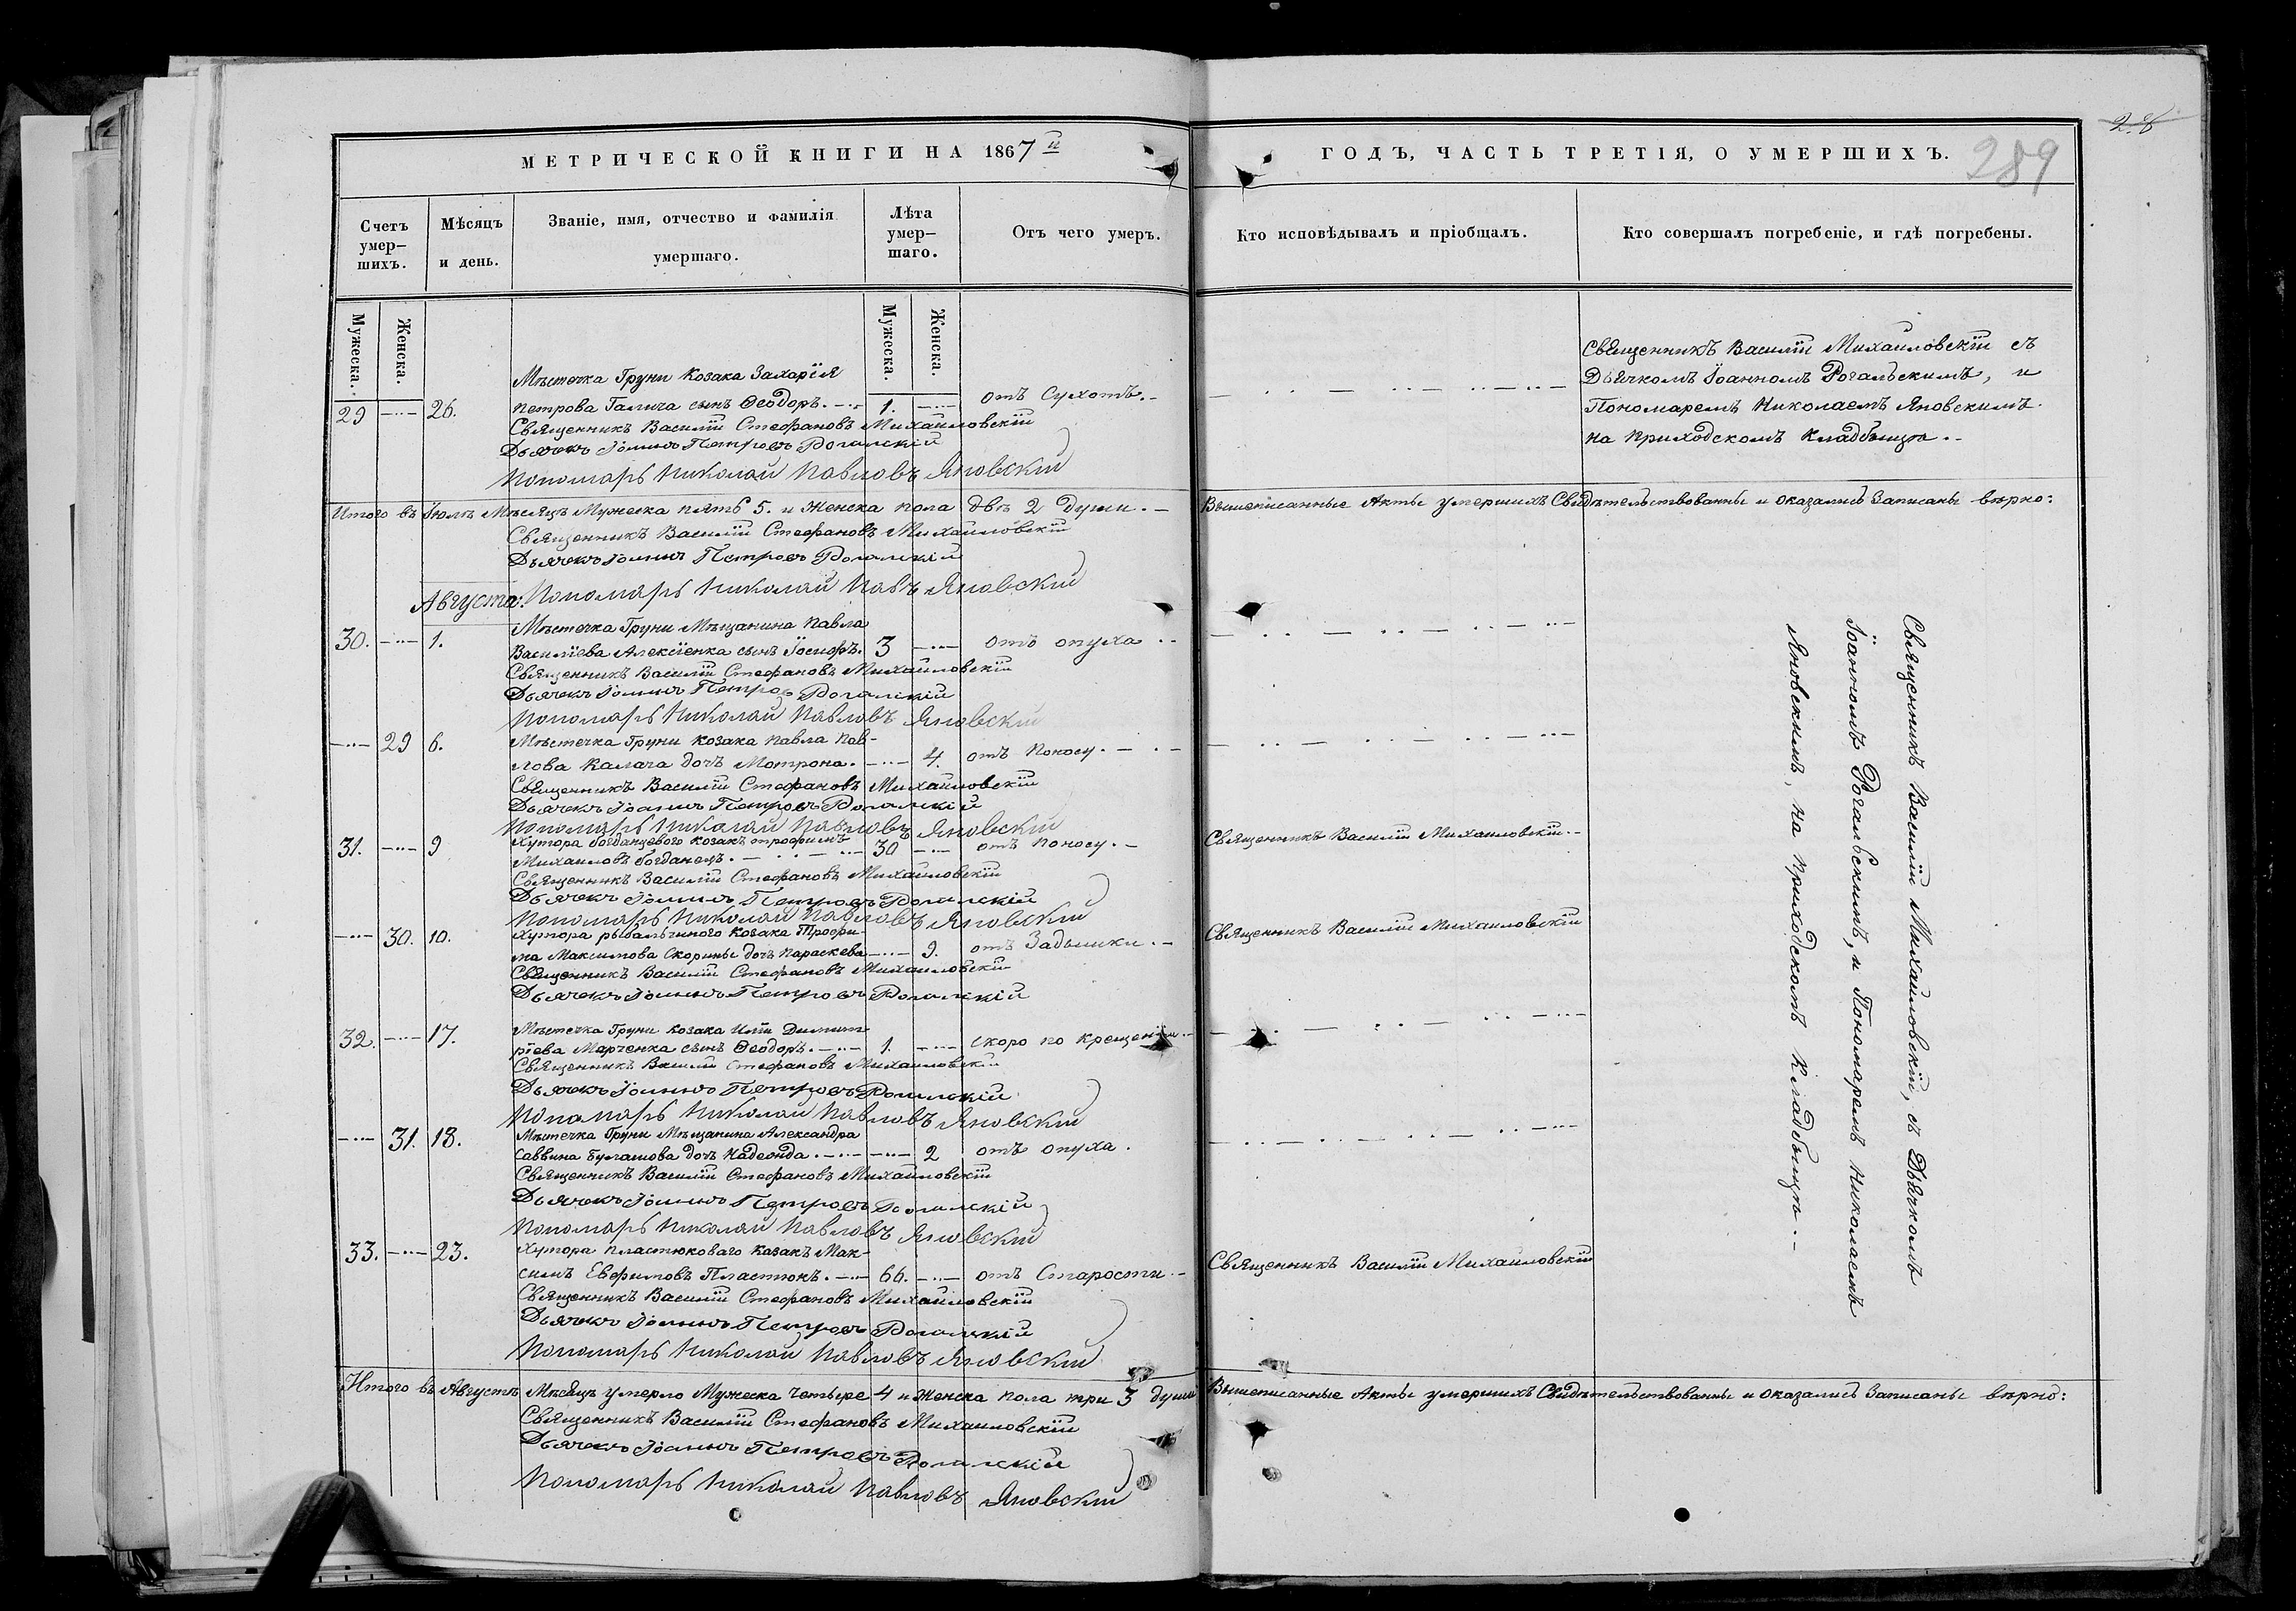 МЕТРИЧЕСКОЙ КНИГИ НА 1867й
Счетъ умер-
шихъ.
Мѣсяцъ
и день.
Званіе, имя, отчество и фамилія
умершаго.
Лѣта
умер-
шаго.
Отъ чего умеръ.
Мужеска.
Женска.
Мужеска.
Женска.
Мѣстечка Груни Козака Захарія
29 26. Петрова Галича сынъ Ѳеодоръ. 1. отъ Сухотъ.
Священникъ Василій Стефановъ Михайловскій
Дьячекъ Іоаннъ Петровъ Рогальскій
Пономарь Николай Павловъ Яновскій
Итого въ Іюлѣ Мѣсяцѣ Мужеска пять 5. и Женска пола двѣ 2 души.
Священникъ Василій Стефановъ Михайловскій
Дьячекъ Іоаннъ Петровъ Рогальскій
Августа: Пономарь Николай Павъ Яновскій
Мѣстечка Груни Мѣщанина Павла
30. 1. Василіева Алексіенка сынъ Іосифъ. 3 отъ опуха
Священникъ Василій Стефановъ Михайловскій
Дьячекъ Іоаннъ Петровъ Рогальскій
Пономарь Николай Павловъ Яновскій
29 6. Мѣстечка Груни козака Павла Пав-
лова Калача дочь Мотрона. 4. отъ Поносу.
Священникъ Василій Стефановъ Михайловскій
Дьячекъ Іоаннъ Петровъ Рогальскій
Пономарь Николай Павловъ Яновскій
31. 9 Хутора Богданцевого козакъ Трофимъ 30 отъ Поносу.
Михаиловъ Богданецъ.
Священникъ Василій Стефановъ Михайловскій
Дьячекъ Іоаннъ Петровъ Рогальскій
Пономарь Николай Павловъ Яновскій
30. 10. Хутора рыбальчиного Козака Трофи-
ма Максимова Скорины дочь Параскева 9. отъ Задышки.
Священникъ Василій Стефановъ Михайловскій
Дьячекъ Іоаннъ Петровъ Рогальскій
32. 17. Мѣстечка Груни козака Иліи Димит-
ріева Марченка сынъ Ѳеодоръ. 1. скоро по крещеніи
Священникъ Василій Стефановъ Михайловскій
Дьячекъ Іоаннъ Петровъ Рогальскій
Пономарь Николай Павловъ Яновскій
31. 18. Мѣстечка Груни Мѣщанина Александра
Саввина Булашова дочь Надежда. 2 отъ опуха.
Священникъ Василій Стефановъ Михайловскій
Дьячекъ Іоаннъ Петровъ Рогальскій
Пономарь Николай Павловъ Яновскій
33. 23. Хутора Пластюковаго Казакъ Мак-
симъ Евфимовъ Пластюкъ. 66. отъ Старости
Священникъ Василій Стефановъ Михайловскій
Дьячекъ Іоаннъ Петровъ Рогальскій
Пономарь Николай Павловъ Яновскій
Итого въ Августѣ Мѣсяцѣ умерло Мужеска четыре 4 и Женска пола три 3 души
Священникъ Василій Стефановъ Михайловскій
Дьячекъ Іоаннъ Петровъ Рогальскій
Пономарь Николай Павловъ Яновскій
28
ГОДЪ, ЧАСТЬ ТРЕТІЯ, О УМЕРШИХЪ.
289
Кто исповѣдывалъ и пріобщалъ.
Кто совершалъ погребеніе, и гдѣ погребены.
Священникъ Василій Михайловскій съ
Дьячкомъ Іоанномъ Рогальскимъ, и
Пономаремъ Николаемъ Яновскимъ
на Приходскомъ Кладбищѣ.
Вышеписанные Акты умершихъ Свидѣтельствованны и оказались Записаны вѣрно:
Священникъ Василій Михайловскій.
Священникъ Василій Михайловскій
Священникъ Василій Михайловскій
Священникъ Василій Михайловскій, съ Дьячкомъ
Іоанномъ Рогальскимъ, и Пономаремъ Николаемъ
Яновскимъ, на Приходскомъ Кладбищѣ.
Вышеписанные Акты умершихъ Свидѣтельствованны и оказались Записаны вѣрно: